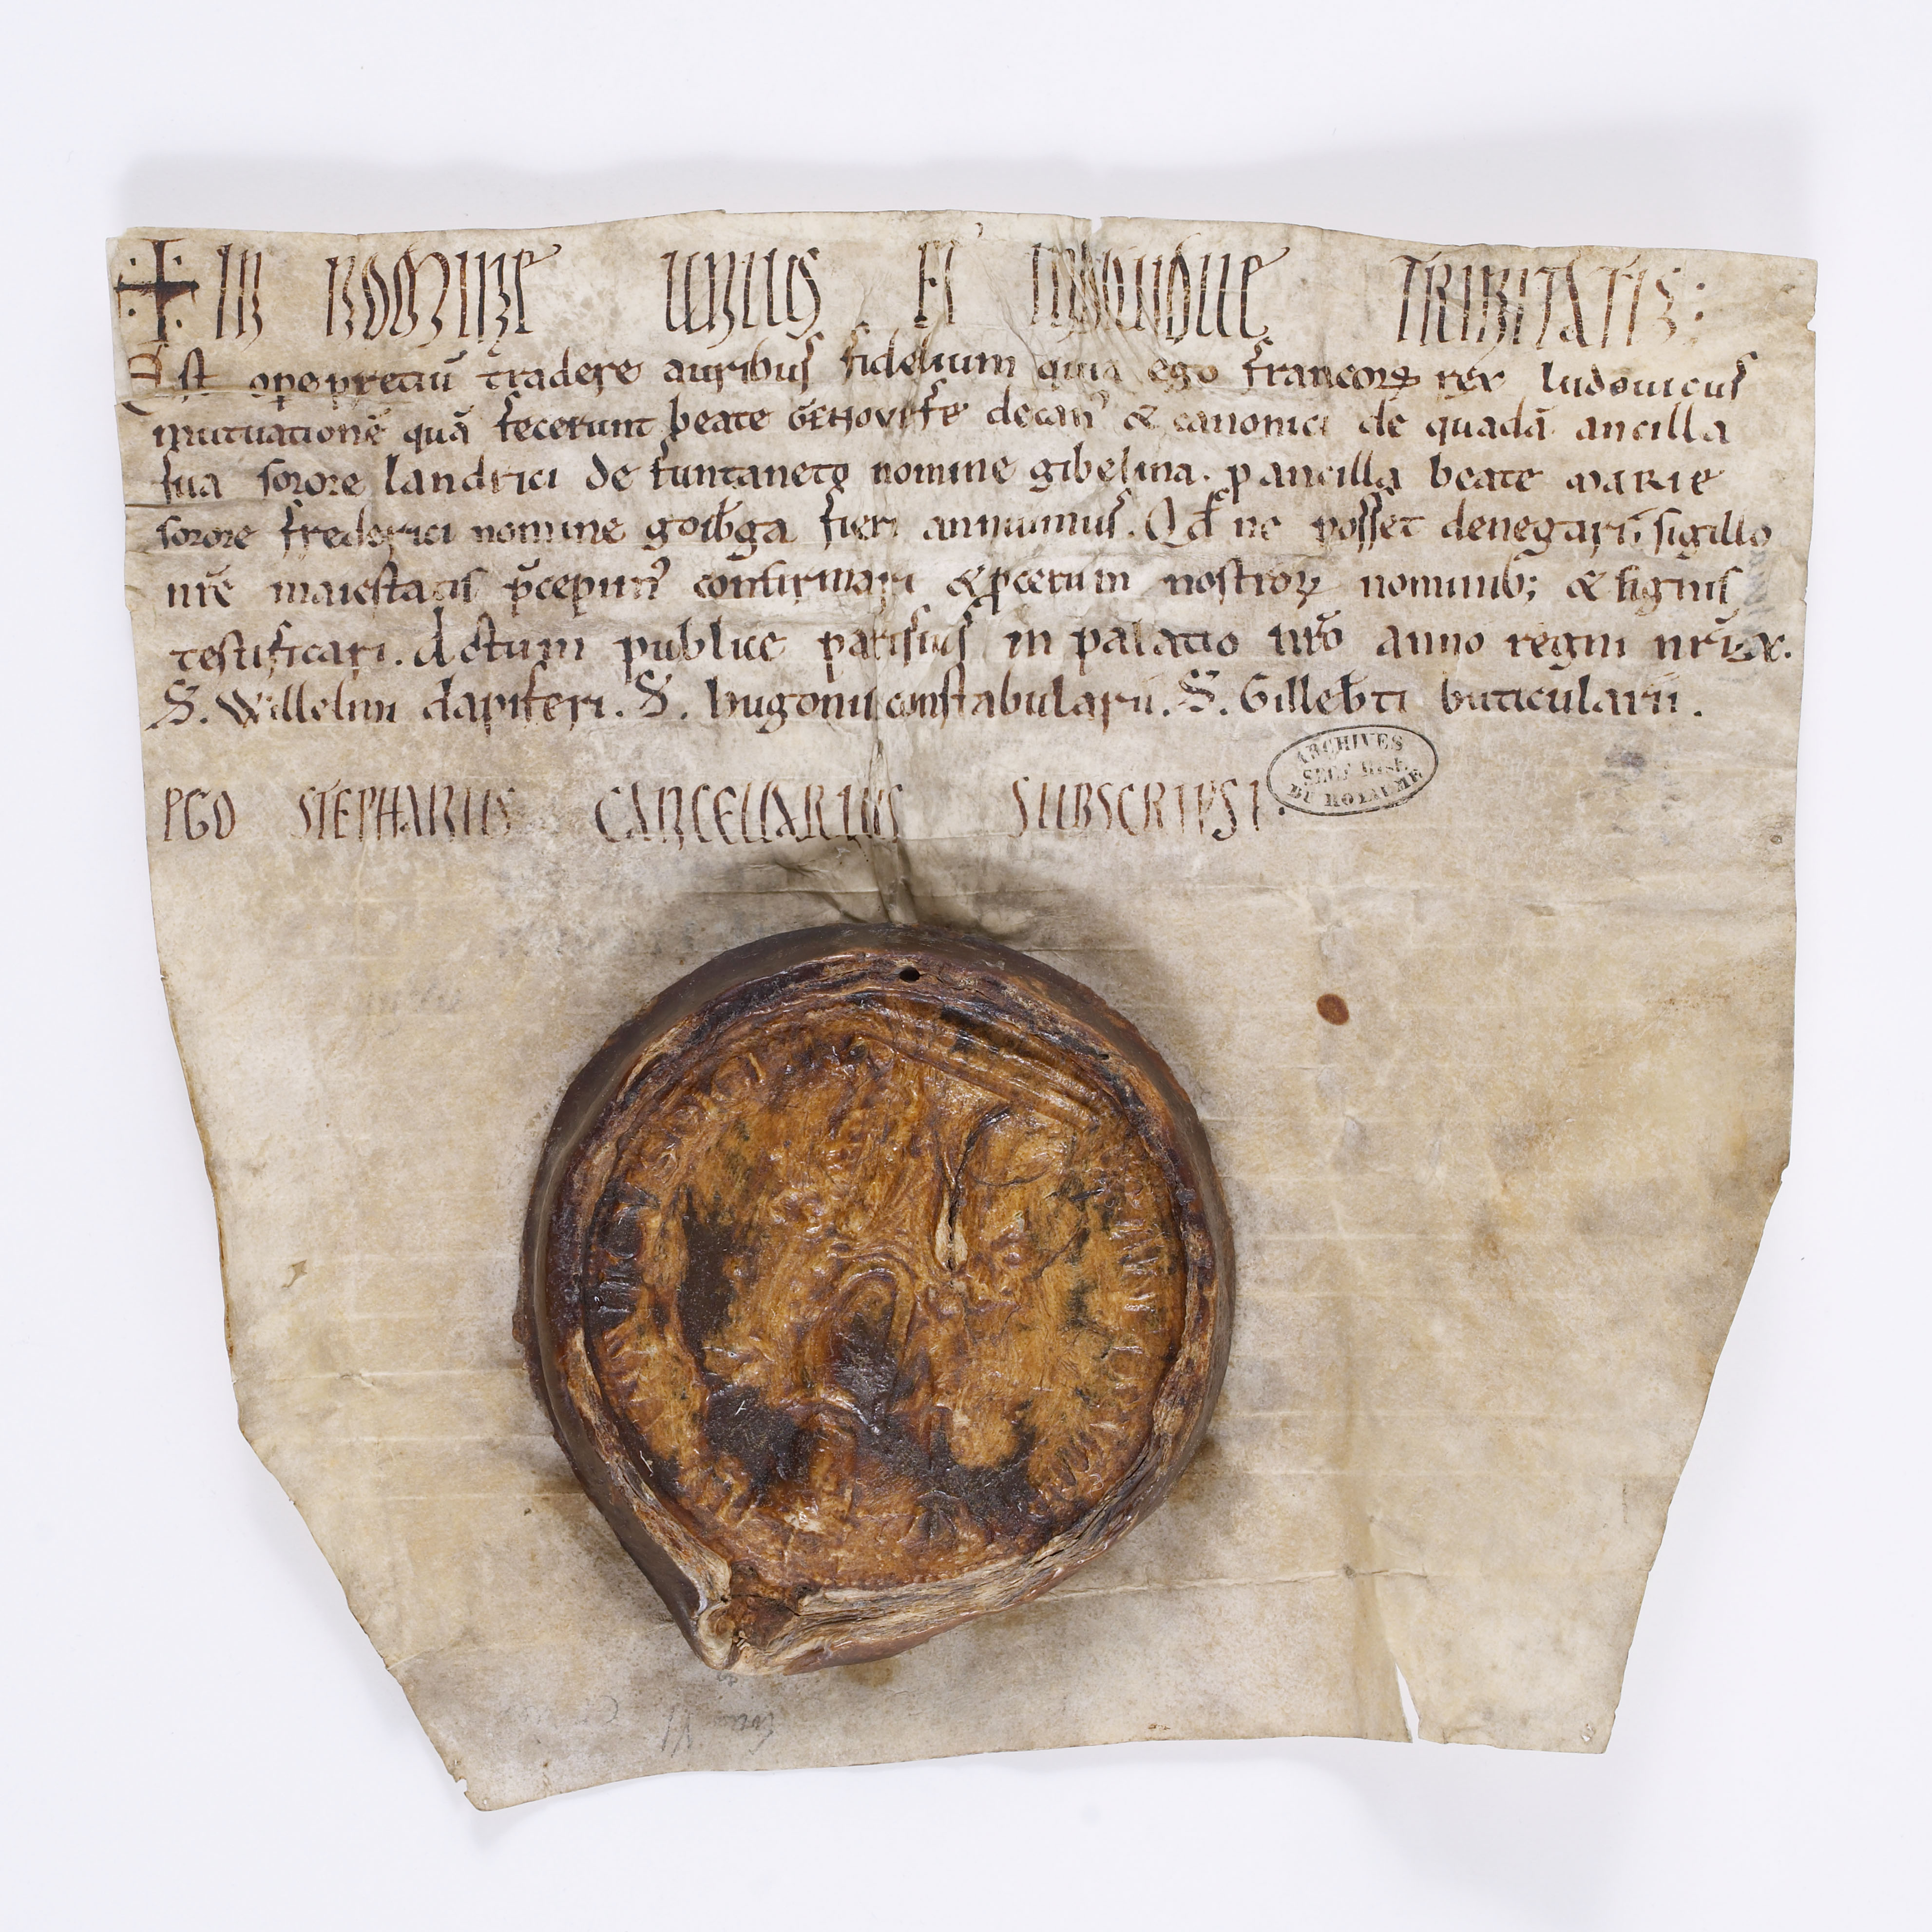 IN NOMINE UNIUS ET INDIVIDUE TRINITATIS:
Est opepreciū tradere auribus fidelium quia ego francorꝝ rex ludouicus
mutuationē quā fecerunt beate GENOVEFe decan᾿ & canonici de quadā ancilla
sua sorore landrici de funtaneto nomine gibelina. p ancilla beate MARIE
sorore frederici nomine goib̄ga fieri annuimus. Qd̄ ne posset denegari, sigillo
nrē maiestatis p̄cepim᾿ confirmari & ꝓcerum nostroꝝ nominib; & signis
testificari. Actum publice parisius in palacio nrō anno regni nrī .ix.
S. Willelmi dapiferi. S. hugonis constabularii. S. Gilleb̄ti buticularii.
EGO STEPHANUS CANCELLARIUS SUBSCRIPSI.
ARCHIVES
SECT. HIST.
DU ROYAUME